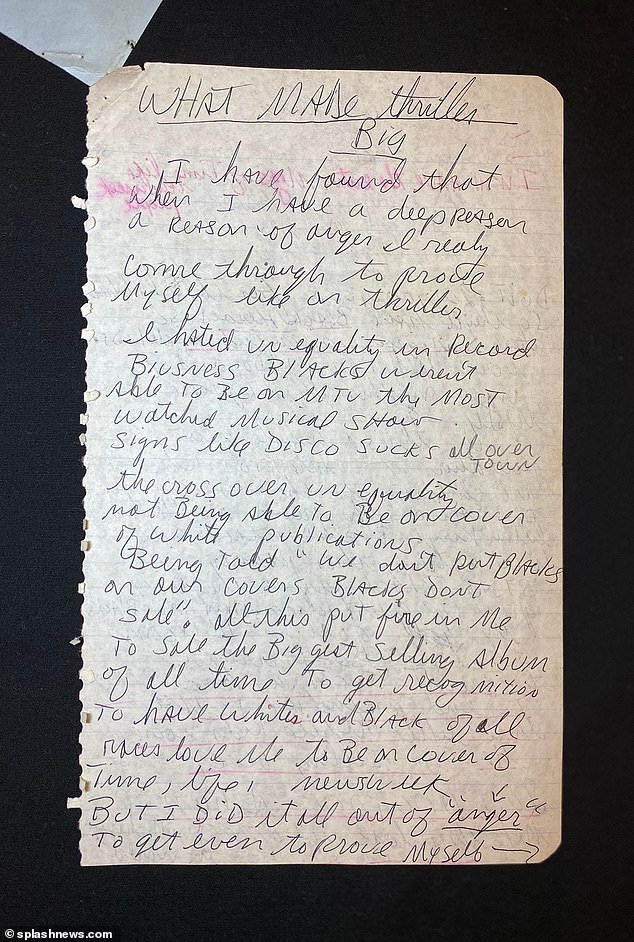 WHAT MADE thriller
Big
I have found that
when I have a deep REASON
a REASON of anger I realy
come through to prove
Myself like on thriller
I hated un equality in Record
Biusness Blacks werent
Able To Be on MTV the Most
watched Musical show.
Signs like DISCO SUCKS all over
TOWN
the cross over un equality
not Being Able To Be on cover
of white publications
Being Told "we don't put Blacks
on our covers BLACKS DON'T
Sale". all this put fire in Me
To Sale the Biggest Selling Album
of all time To get recognition
To have whites and Black of all
races love Me to Be on cover of
Time, life, newsweek
BUT I DID it all out of "anger"
To get even to prove Myself →
splashnews.com